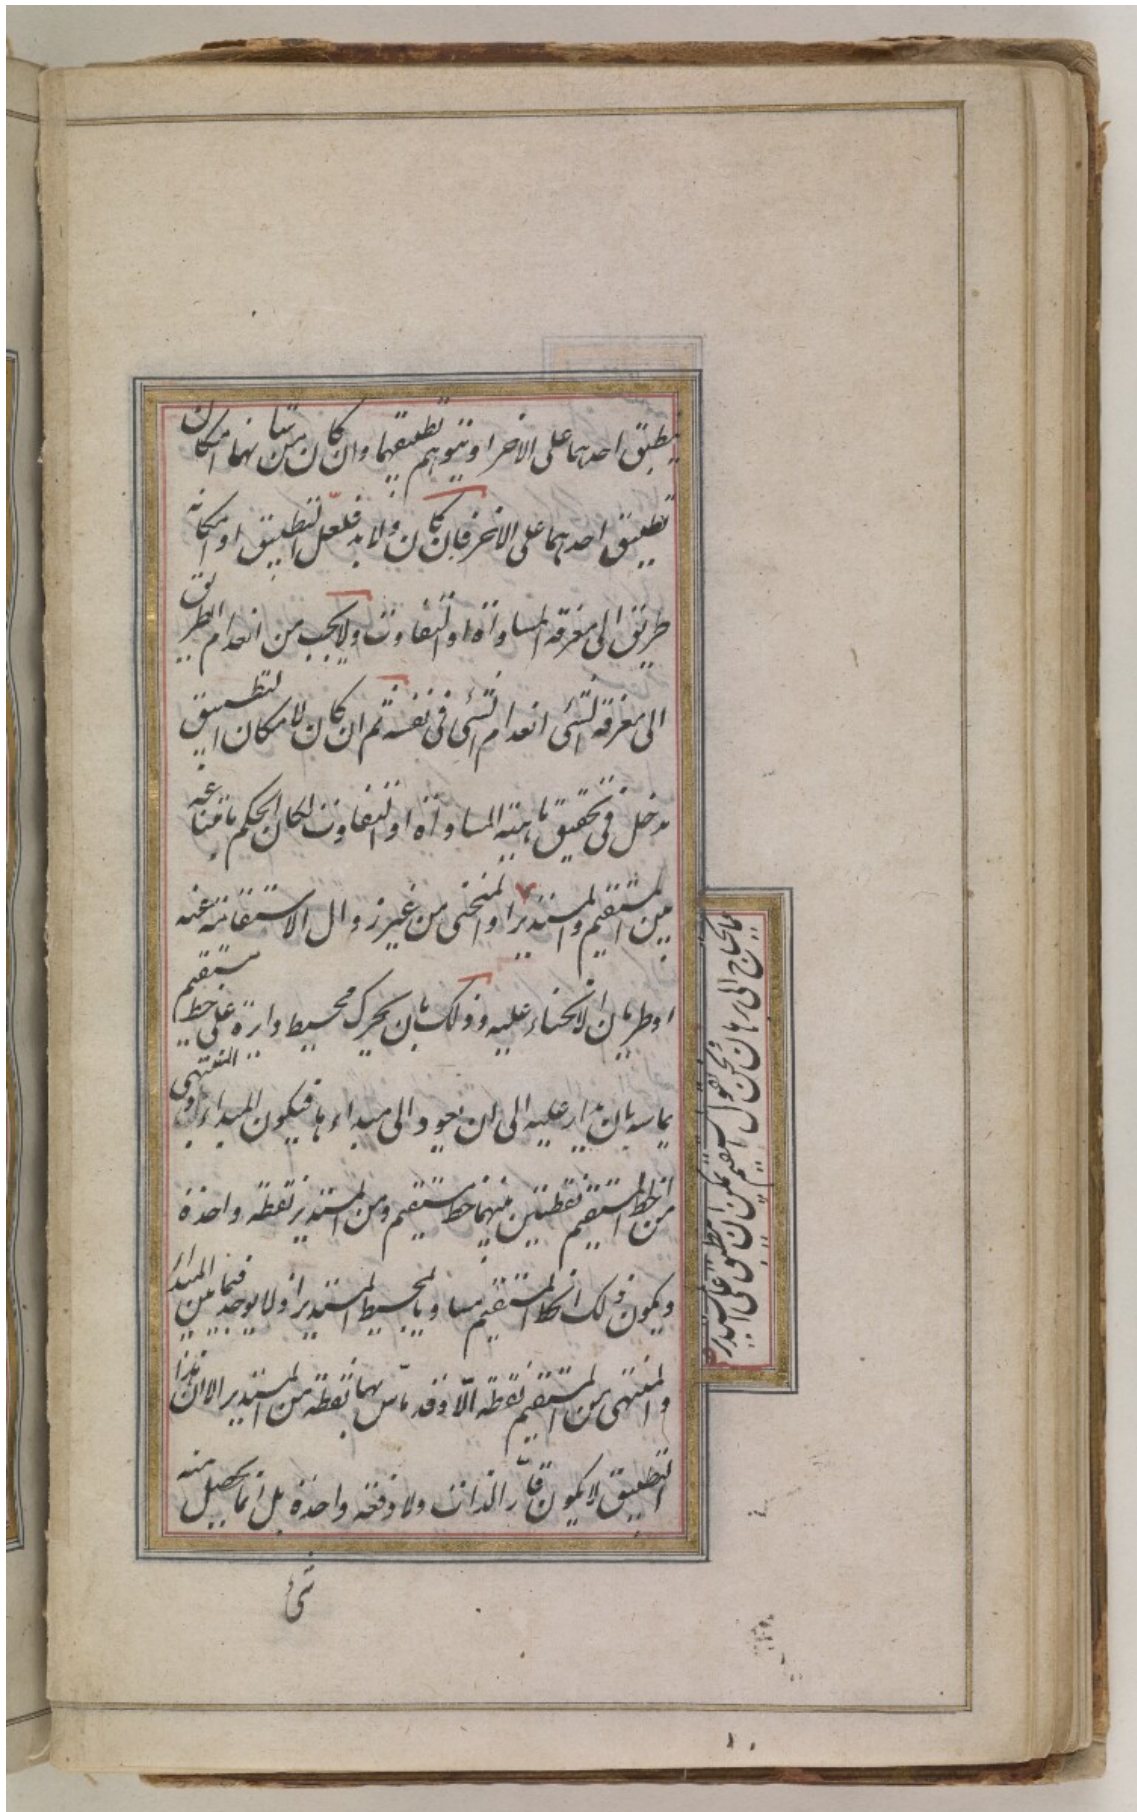 ينطبق احدهما على الاخر او يتوهم تطبيقهما وان كان من شانهما امكان
تطبيق احدهما على الاخر فان كان ولا بد فلعل التطبيق او امكانه
طريق الى معرفة المساواة او التفاوت ولا يجب من انعدام الطريق
الى معرفة الشئ انعدام الشئ فى نفسه ثم ان كان لامكان التطبيق
مدخل فى تحقيق ماهية المساواة او التفاوت لكان الحكم بامتناعه
بين المستقيم والمستدير او المنحنى من غير زوال الاستقامة عنه
او طريان الانحناء عليه وذلك بان يحرك محيط دائرة على خط مستقيم
يماسه بان يدار عليه الى ان يعود الى مبداءها فيكون المبداء والمنتهى
من الخط المستقيم نقطتين بينهما خط مستقيم ومن المستدير نقطة واحدة
ويكون ذلك الخط المستقيم مساويا لمحيط المستدير اذ لا يوجد فيما بين المبداء
والمنتهى من المستقيم نقطة الّا وقد ماسّ بها نقطة من المستدير الا ان هذا
التطبيق لا يكون قارّ الذات ولا دفعة واحدة بل انما يحصل منه
شئ
مما يحتاج الى برهان ونحن نقول المستقيم يمكن ان ينطبق على المستدير